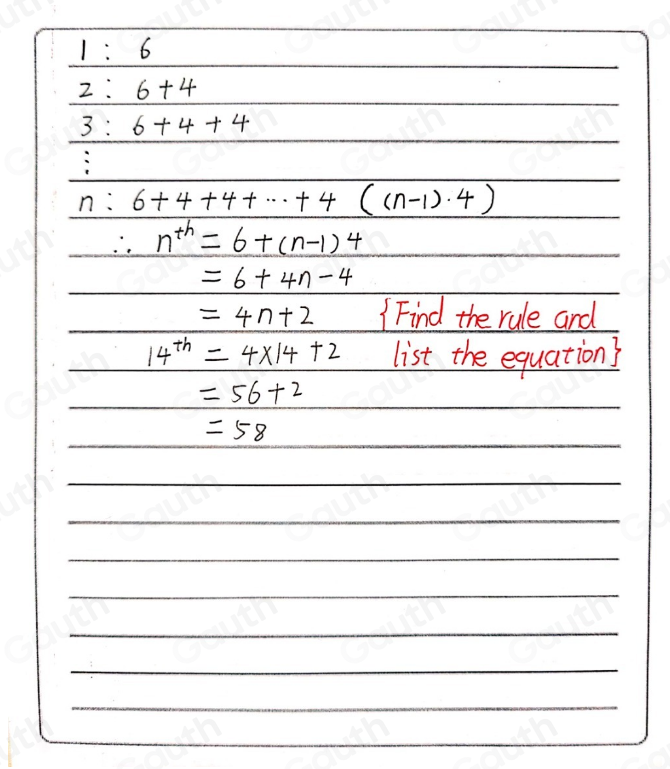 1 : 6
2 : 6+4
3 : 6+4+4
⋮
n : 6+4+4+⋯+4 ((n-1)·4)
∴ n^th = 6+(n-1)4
= 6+4n-4
= 4n+2 {Find the rule and
14^th = 4×14+2 list the equation}
= 56+2
= 58